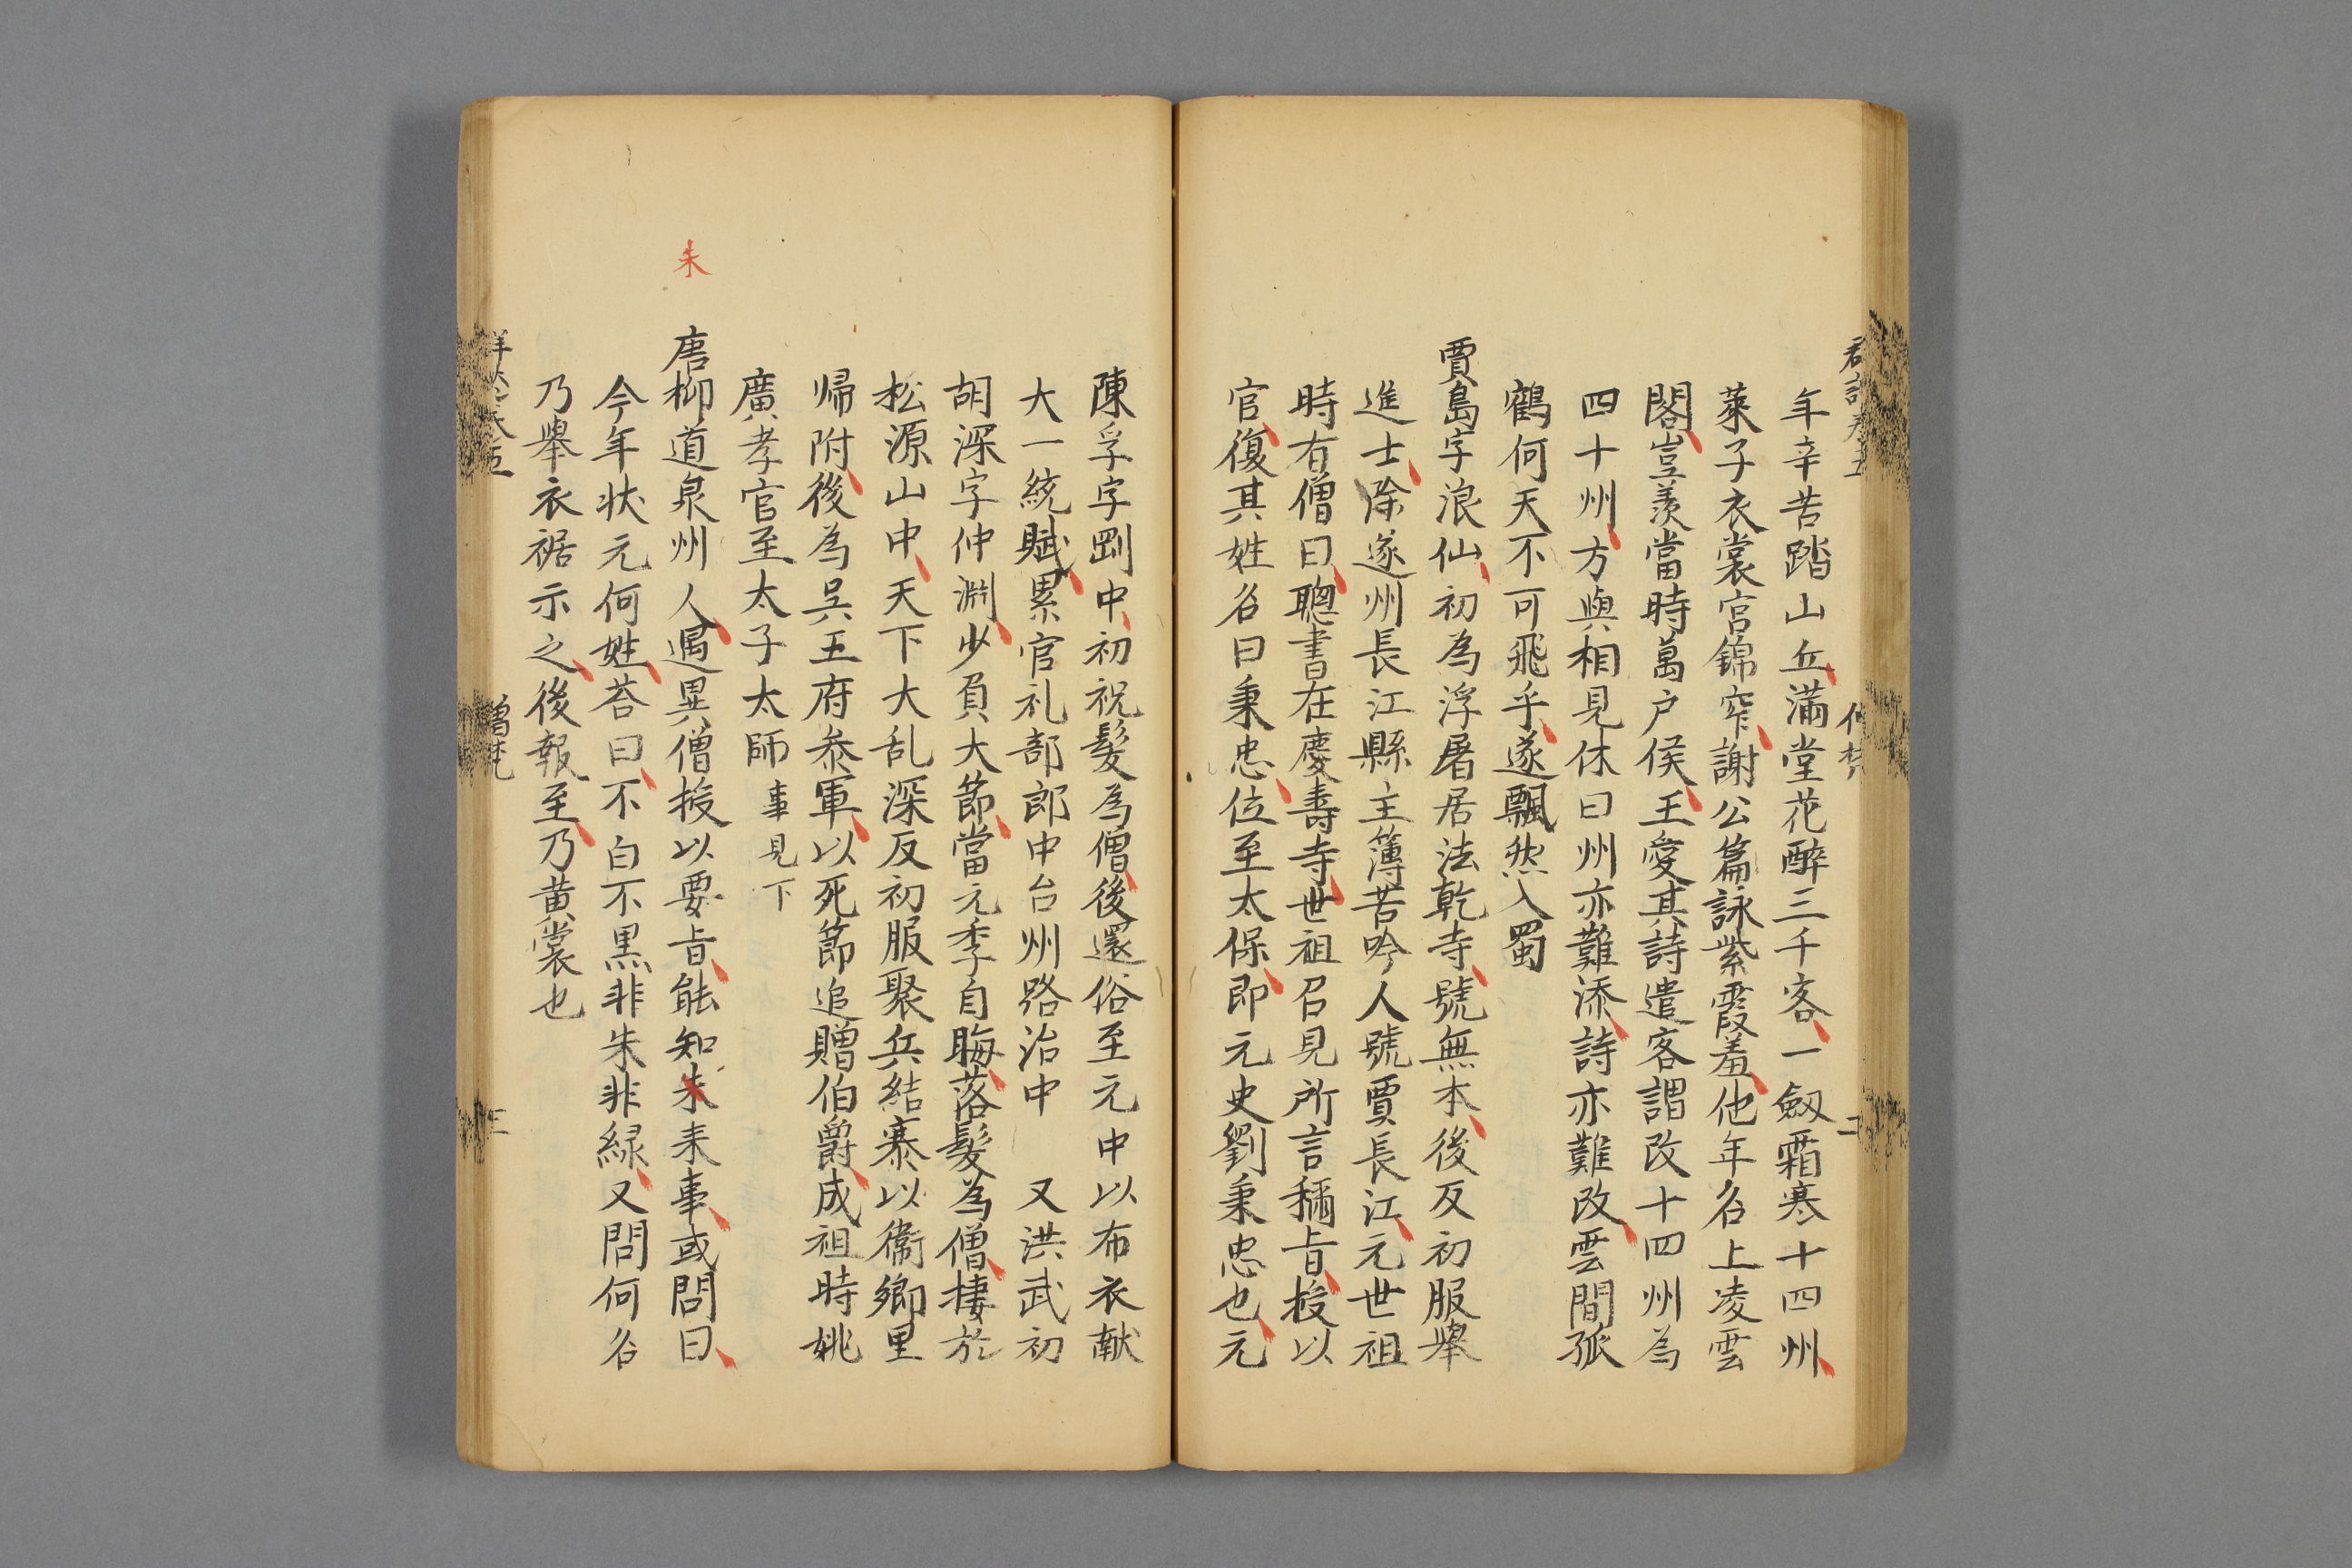 年辛苦踏山丘滿堂花醉三千客一劔霜寒十四州
萊子衣裳宮錦窄謝公篇詠紫霞羞他年名上凌雲
閣豈羨當時萬户侯王愛其詩遣客謂改十四州為
四十州方與相見休曰州亦難添詩亦難改雲間孤
鶴何天不可飛乎遂飄然入蜀
賈島字浪仙初為浮屠居法乾寺號無本後反初服舉
進士除遂州長江縣主簿苦吟人號賈長江元世祖
時有僧曰聰書在慶壽寺世祖召見所言稱旨授以
官復其姓名曰秉忠位至太保即元史劉秉忠也元
陳孚字剛中初祝髮為僧後還俗至元中以布衣献
大一統賦累官礼部郎中台州路治中 又洪武初
胡深字仲淵少負大節當元季自晦落髮為僧棲於
松源山中天下大乱深反初服聚兵結寨以衞鄉里
帰附後為吳王府叅軍以死節追贈伯爵成祖時姚
廣孝官至太子太師 事見下
朱
唐柳道泉州人遇異僧授以要旨能知未来事或問曰
今年状元何姓荅曰不白不黒非朱非緑又問何名
乃舉衣裾示之後報至乃黄裳也
三